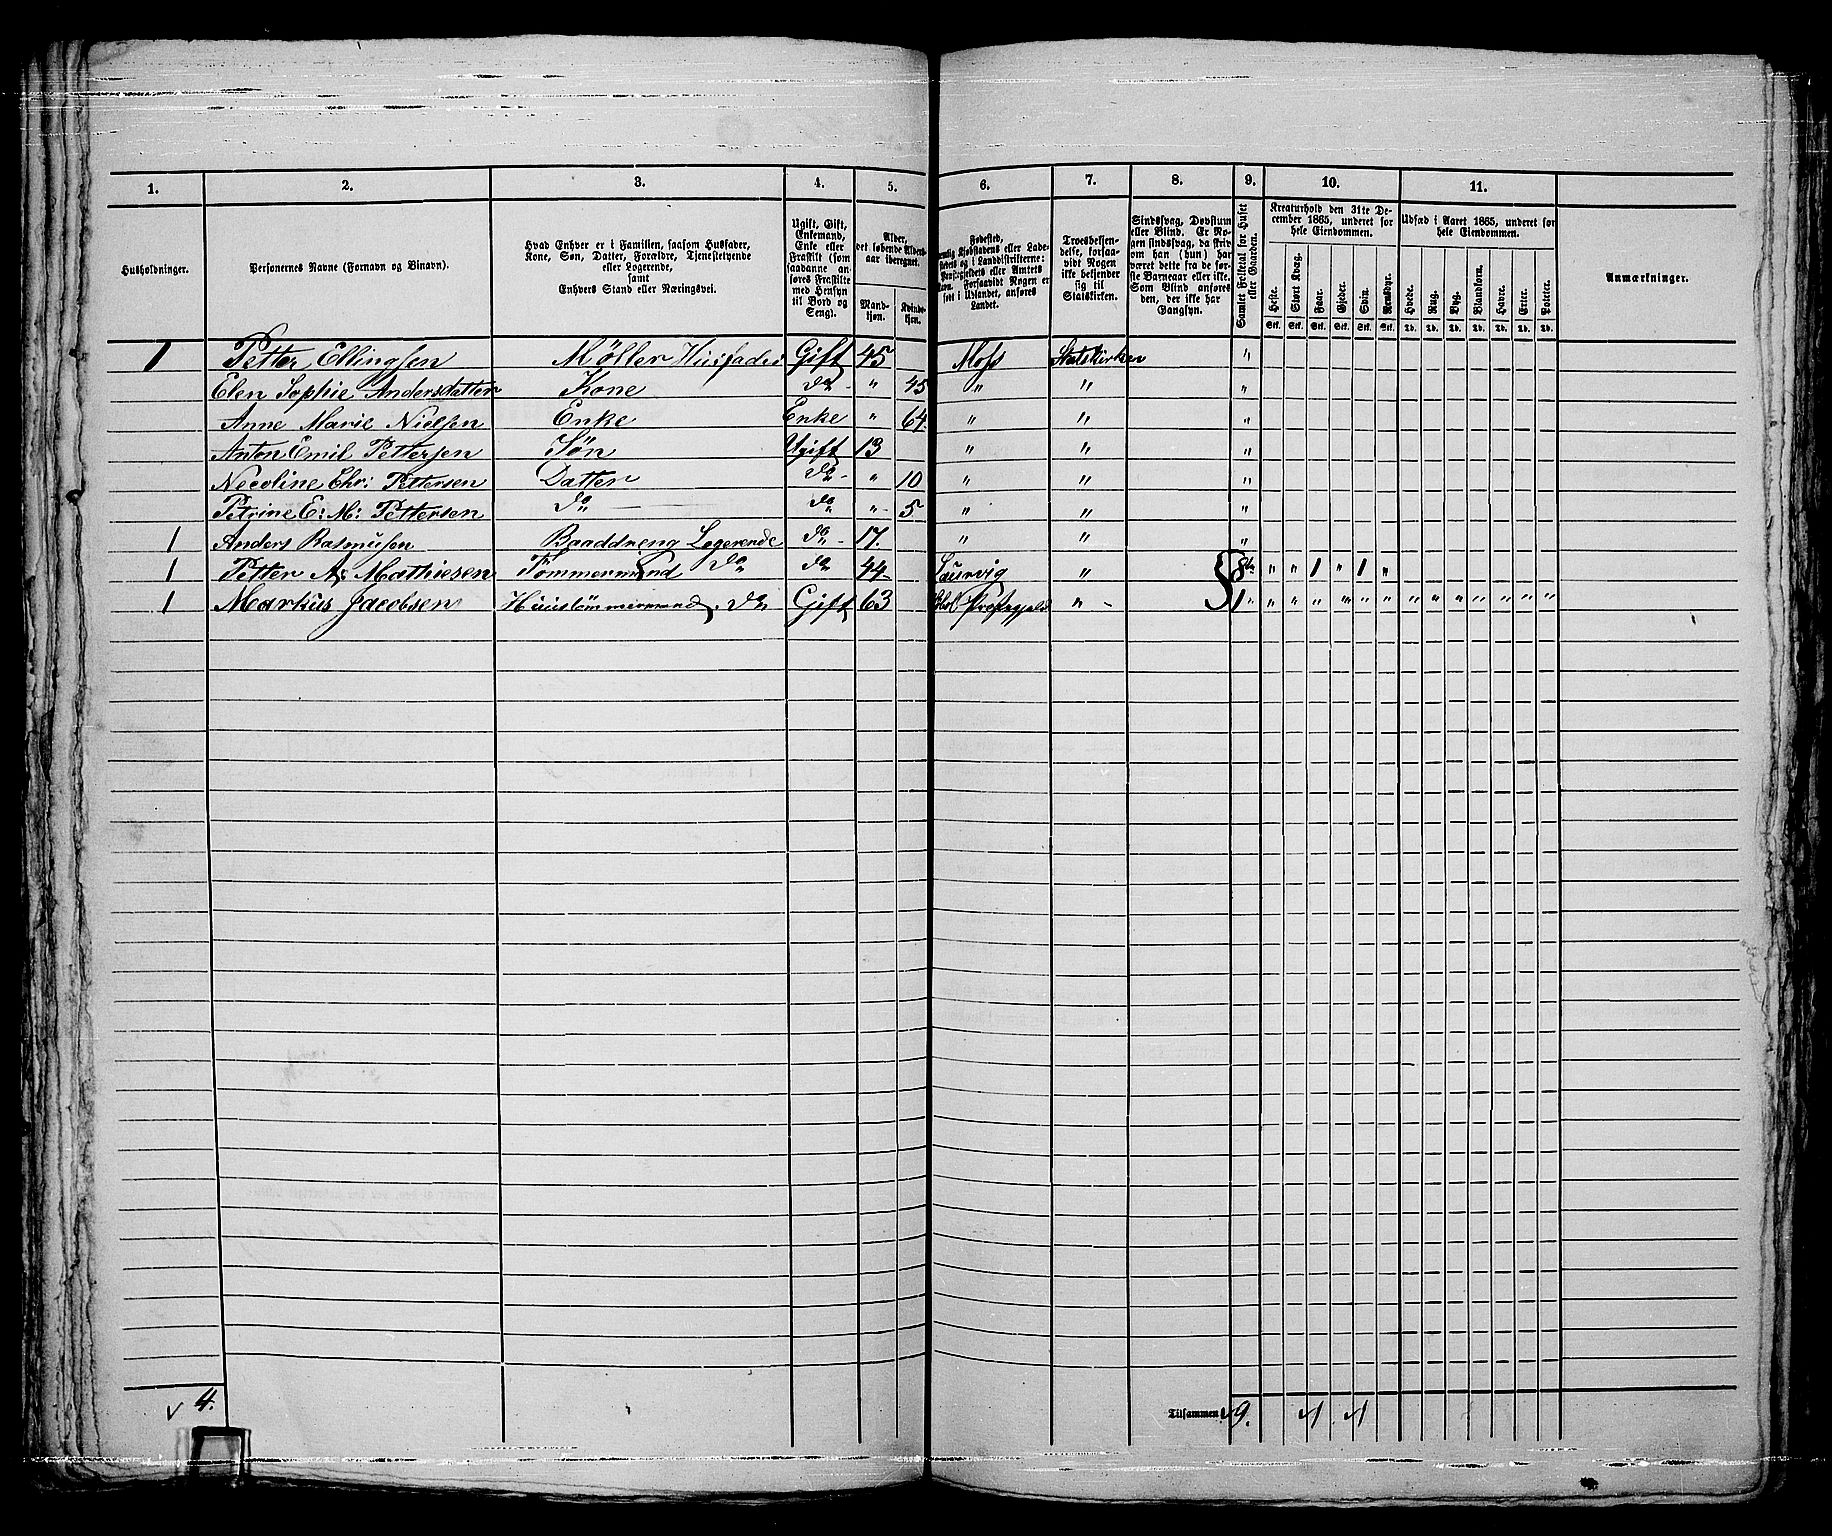 1. 2. 3. 4. 5. 6. 7. 8. 9. 10. 11.
Husholdninger.
Personernes Navne (Fornavn og Binavn).
Hvad Enhver er i Familien, saasom Husfader,
Kone, Søn, Datter, Forældre, Tjenestetyende
eller Logerende,
samt
Enhvers Stand eller Næringsvei.
Ugift, Gift,
Enkemand,
Enke eller
Fraskilt (som
saadanne an-
føres Fraskilte
med Hensyn
til Bord og
Seng).
Alder,
det løbende Alders-
aar iberegnet.
Mand-
kjøn.
Kvinde-
kjøn.
Fødested,
Kjøbstadens eller Lade-
stedets og i Landdistrikterne:
Præstegjeldets eller Amtets
Navn. Forsaavidt Nogen er
født i Udlandet, anføres
Landet.
Troesbekjen-
delse, forsaa-
vidt Nogen
ikke bekjender
sig til
Statskirken.
Sindssvag, Døvstum
eller Blind. Er No-
gen sindssvag, da skriv
om han (hun) har
været dette fra de før-
ste Barneaar eller ikke.
Som Blind anføres
den, der ikke har
Gangsyn.
Samlet Folketal for Huset
eller Gaarden.
Kreaturhold den 31te De-
cember 1865, underet for
hele Eiendommen.
Heste. Stort Kvæg. Faar. Gjeder. Svin. Rensdyr.
Stk. Stk. Stk. Stk. Stk. Stk.
Udsæd i Aaret 1865, underet for
hele Eiendommen.
Hvede. Rug. Byg. Blandkorn. Havre. Erter. Poteter.
Td. Td. Td. Td. Td. Td. Td.
Anmærkninger.
1 Petter Ellingsen Møller Husfader Gift 45 Moss Statskirken "
Elen Sophie Andersdatter Kone do - " 45 " " "
Anne Marie Nielsen Enke Enke " 64. " " "
Anton Emil Pettersen Søn Ugift 13 " " "
Necoline Chr: Pettersen Datter do - " 10 " " "
Petrine E: M: Pettersen do do " - 5 " " "
1 Anders Rasmusen Baaddreng Logerende do - 17. " " "
1 Petter A: Mathiesen Tømmermand do do 44 - Laurvig " 8 " " 1 " 1 "
1 Markus Jacobsen Huustømmermand, do Gift 63 Præstegjeld " - 1 " " " " " " " " " " " " "
√ 4.
Tilsammen √ 9. √1 √1